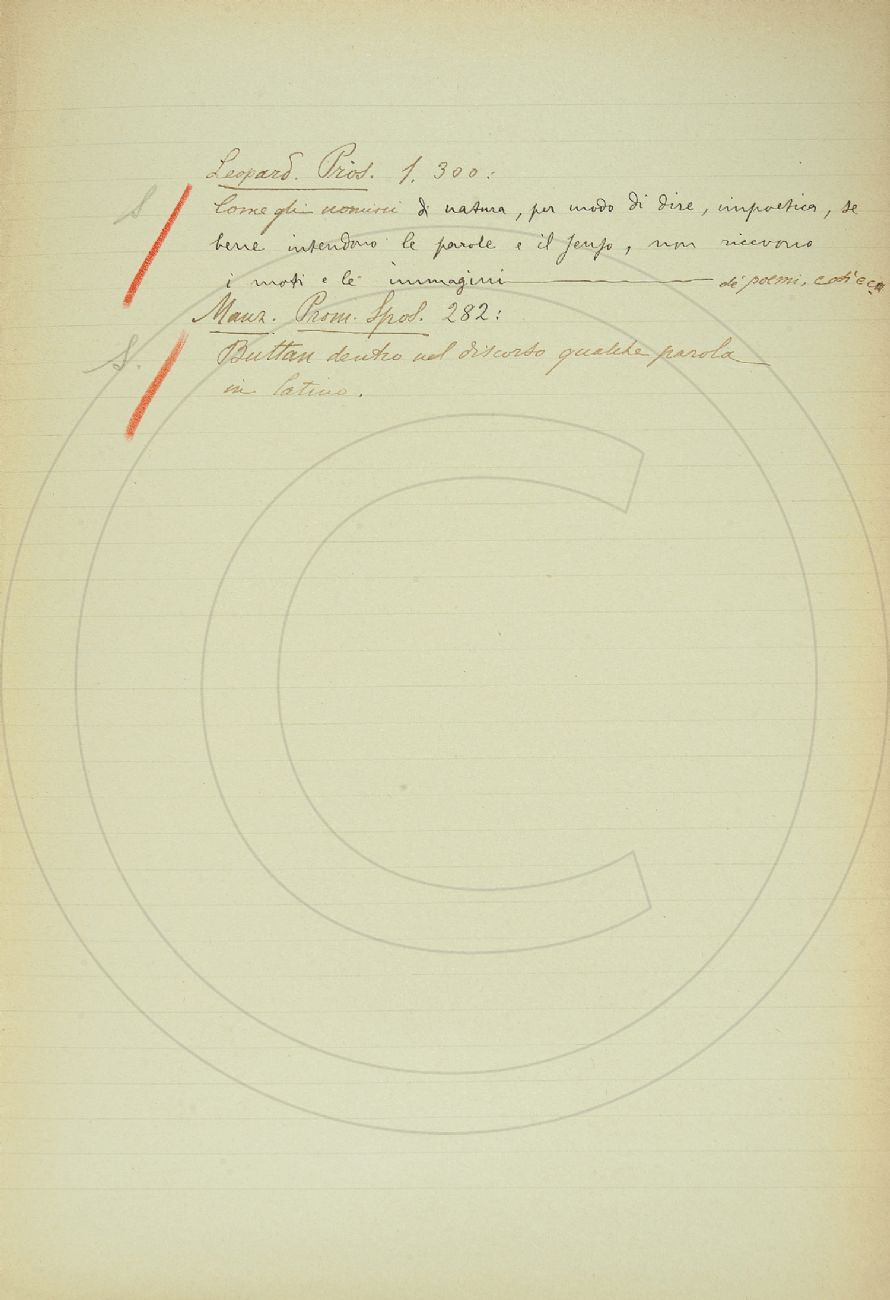 Leopard. Pros. 1. 300:
S Come gli uomini di natura, per modo di dire, impoetica, se
bene intendono le parole e il senso, non ricevono
i moti e le immagini de' poemi, così ecc.
Manz. Prom. Spos. 282:
S. Buttan dentro nel discorso qualche parola
in latino.